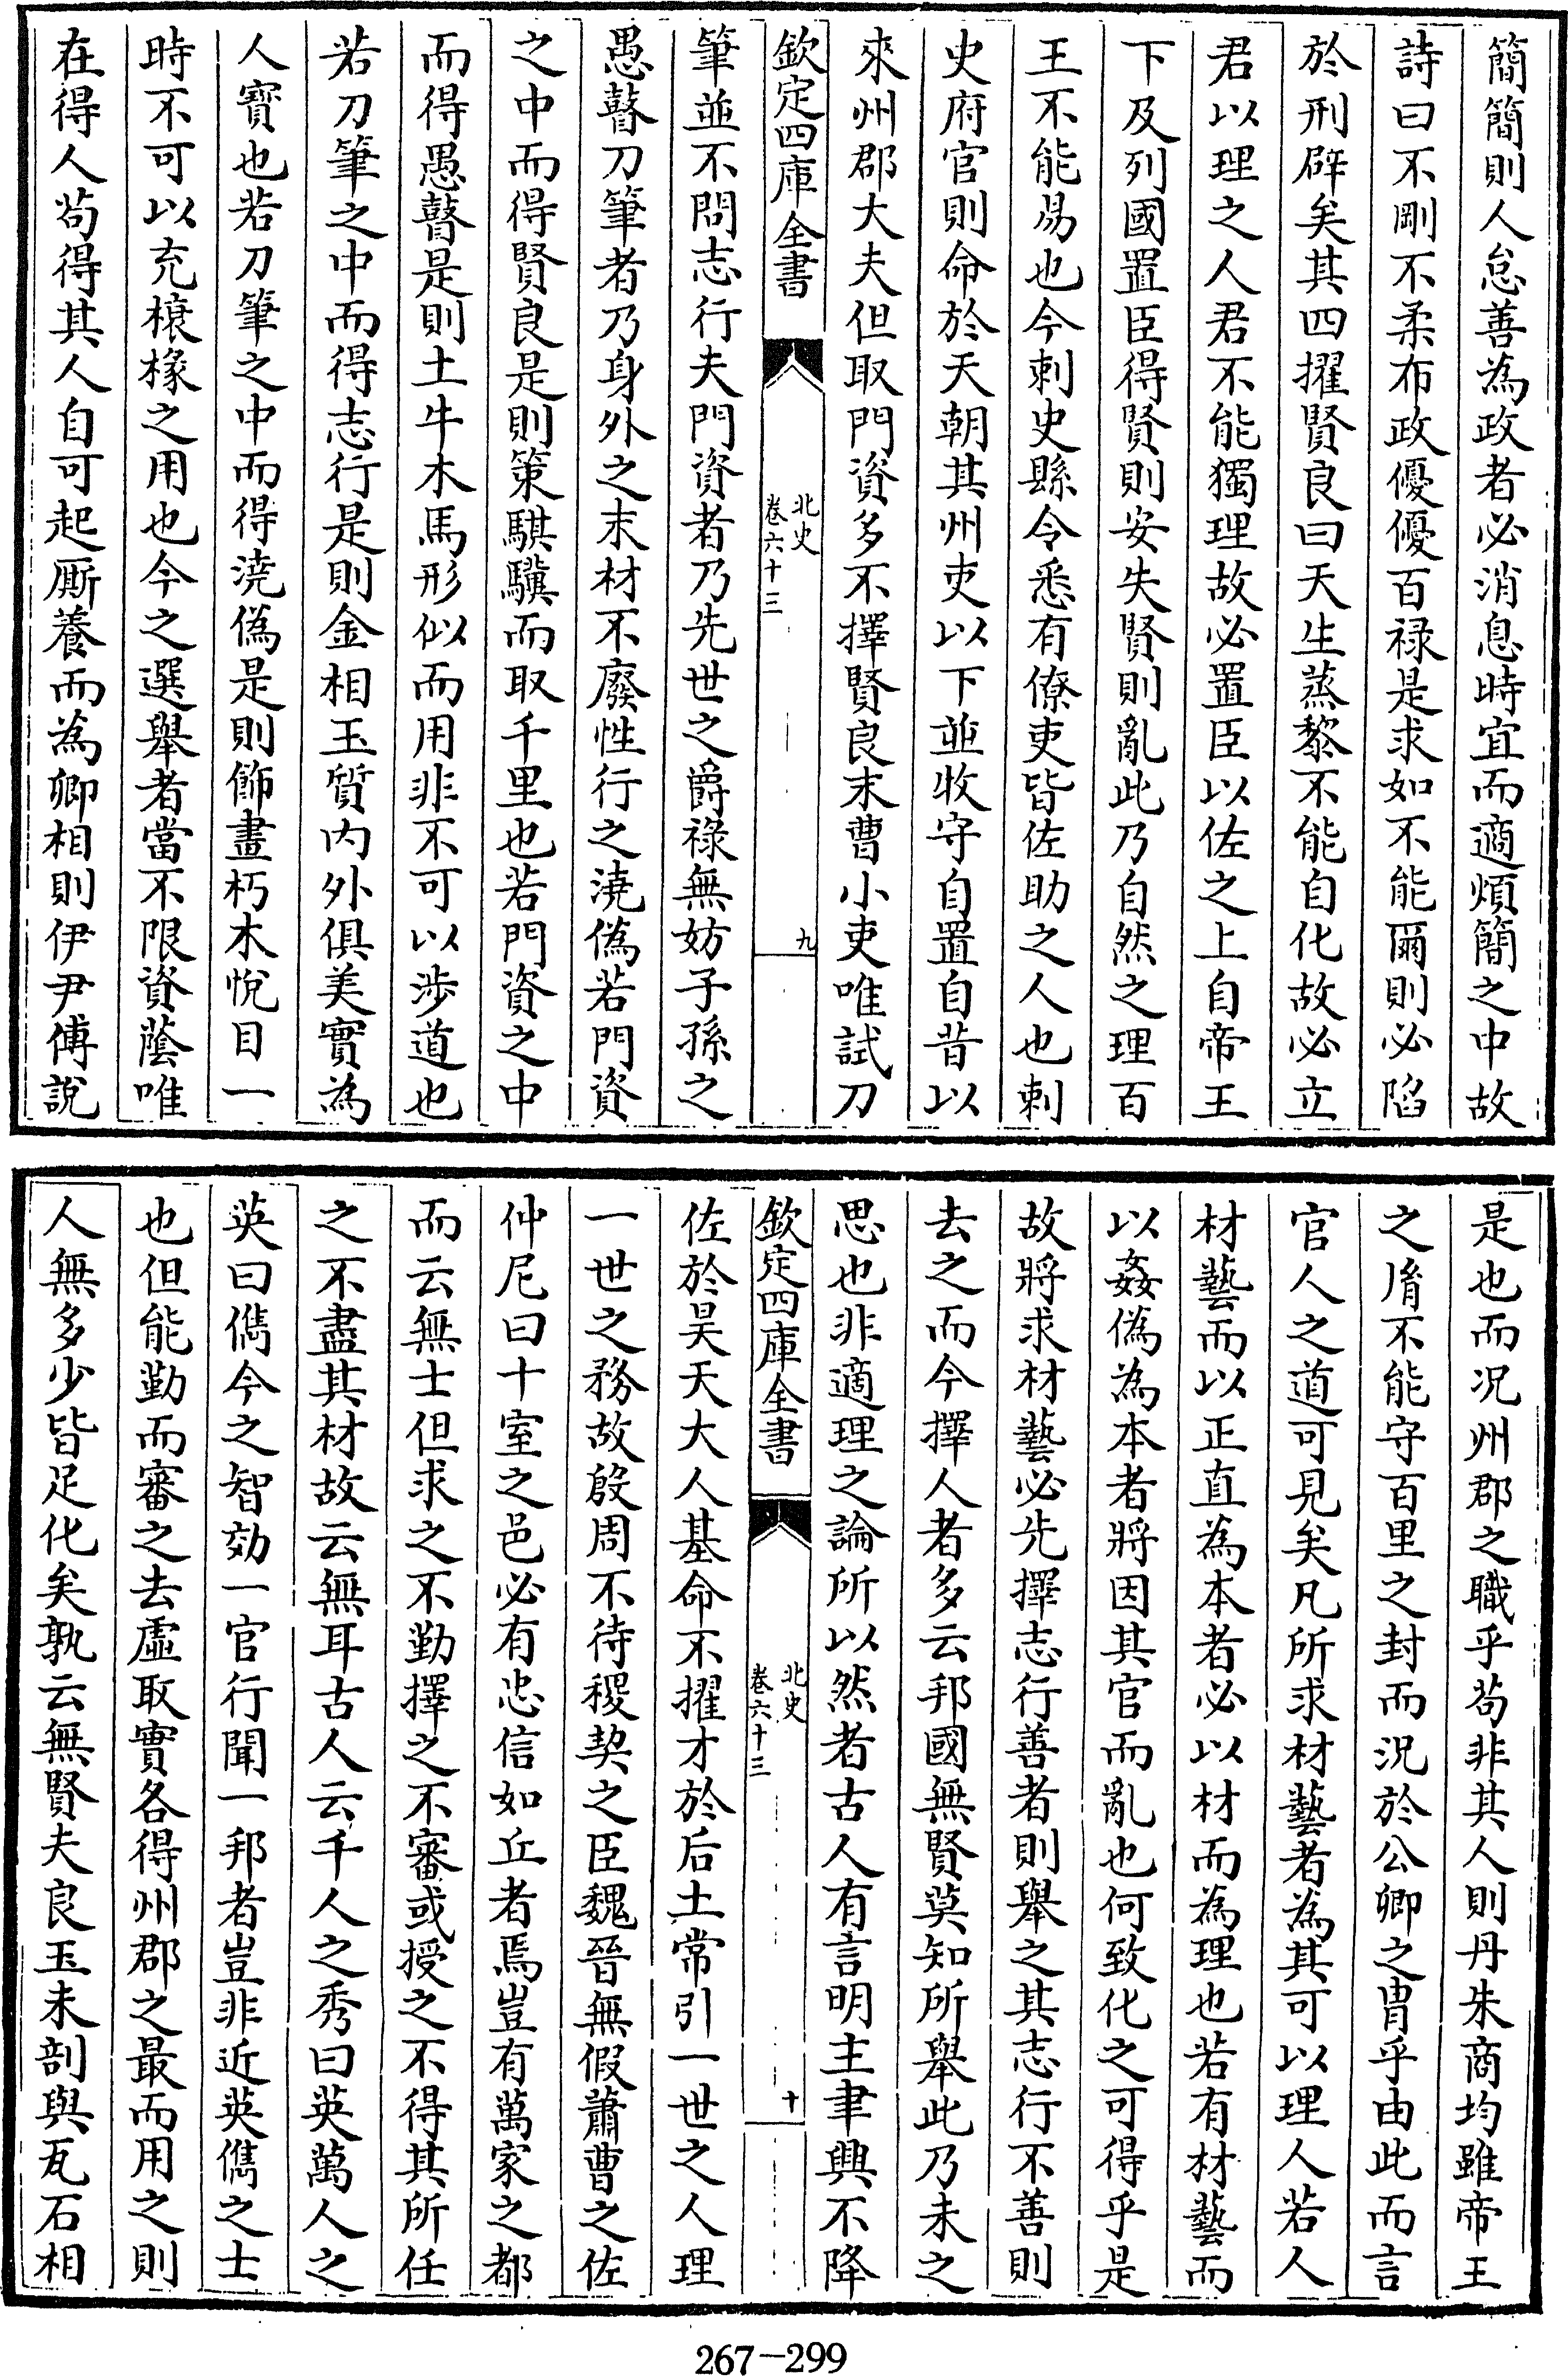 簡簡則人怠善為政者必消息時宜而適煩簡之中故
詩曰不剛不柔布政優優百禄是求如不能爾則必陷
於刑辟矣其四擢賢良曰天生蒸黎不能自化故必立
君以理之人君不能獨理故必置臣以佐之上自帝王
下及列國置臣得賢則安失賢則亂此乃自然之理百
王不能易也今刺史縣令悉有僚吏皆佐助之人也刺
史府官則命於天朝其州吏以下並牧守自置自昔以
來州郡大夫但取門資多不擇賢良末曹小吏唯試刀
欽定四庫全書
北史
卷六十三
九
筆並不問志行夫門資者乃先世之爵祿無妨子孫之
愚瞽刀筆者乃身外之末材不廢性行之澆偽若門資
之中而得賢良是則策騏驥而取千里也若門資之中
而得愚瞽是則土牛木馬形似而用非不可以涉道也
若刀筆之中而得志行是則金相玉質内外俱美實為
人寳也若刀筆之中而得澆偽是則飾畫朽木悅目一
時不可以充榱椽之用也今之選舉者當不限資蔭唯
在得人茍得其人自可起厮養而為卿相則伊尹傅說
是也而况州郡之職乎茍非其人則丹朱商均雖帝王
之胤不能守百里之封而況於公卿之胄乎由此而言
官人之道可見矣凡所求材藝者為其可以理人若人
材藝而以正直為本者必以材而為理也若有材藝而
以姦偽為本者將因其官而亂也何致化之可得乎是
故將求材藝必先擇志行善者則舉之其志行不善則
去之而今擇人者多云邦國無賢莫知所舉此乃未之
思也非適理之論所以然者古人有言明主聿興不降
欽定四庫全書
北史
卷六十三
十
佐於昊天大人基命不擢才於后土常引一世之人理
一世之務故殷周不待稷契之臣魏晉無假蕭曹之佐
仲尼曰十室之邑必有忠信如丘者焉豈有萬家之都
而云無士但求之不勤擇之不審或授之不得其所任
之不盡其材故云無耳古人云千人之秀曰英萬人之
英曰儁今之智効一官行聞一邦者豈非近英儁之士
也但能勤而審之去虛取實各得州郡之最而用之則
人無多少皆足化矣孰云無賢夫良玉未剖與瓦石相
267-299